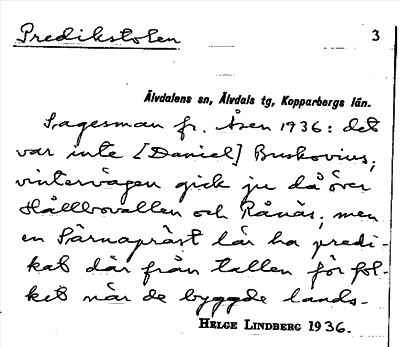 Predikstolen
3
Älvdalens sn, Älvdals tg, Kopparbergs län.
Sagesman fr. Åsen 1936: det
var inte [Daniel] Buskovius,
vintervägen gick ju då över
Hållbovallen och Rånäs, men
en Särnapräst lär ha predi-
kat där från tallen för fol-
ket när de byggde lands-
HELGE LINDBERG 1936.